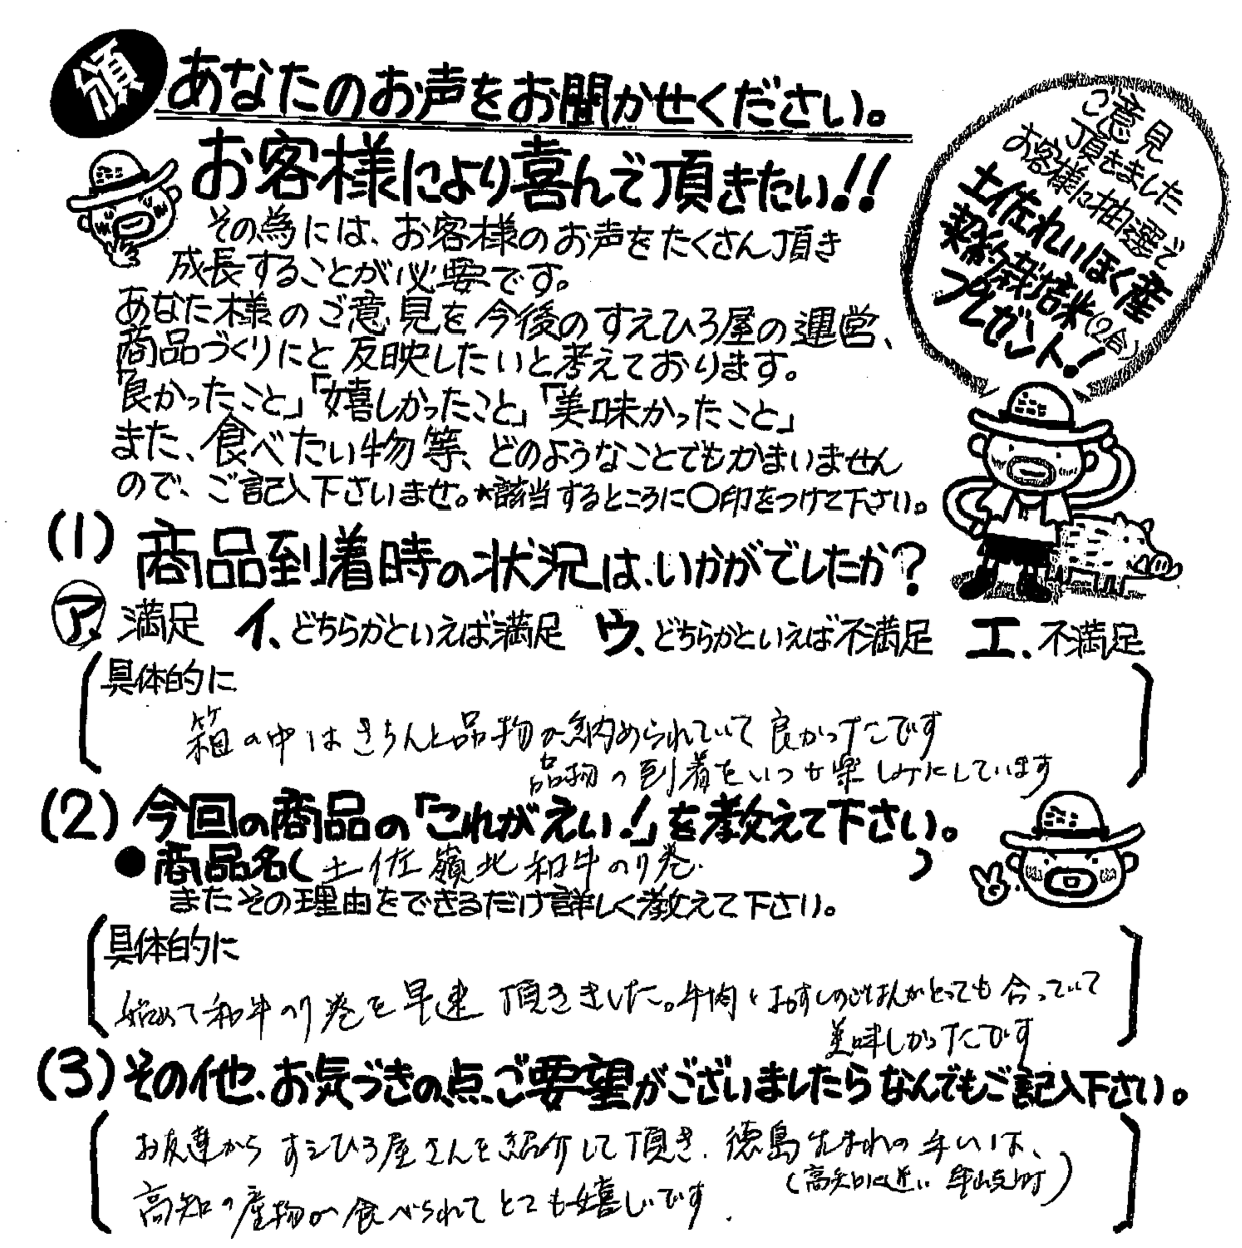 領
あなたのお声をお聞かせください。
お客様により喜んで頂きたい!!
その為には、お客様のお声をたくさん頂き
成長することが必要です。
あなた様のご意見を今後のすえひろ屋の運営、
商品づくりにと反映したいと考えております。
「良かったこと」「嬉しかったこと」「美味かったこと」
また、食べたい物等、どのようなことでもかまいません
ので、ご記入下さいませ。★該当するところに○印をつけて下さい。
ご意見
頂きました
お客様に抽選で
土佐れいほく産
契約栽培米(2合)
プレゼント!
(1) 商品到着時の状況は、いかがでしたか?
ア、満足 イ、どちらかといえば満足 ウ、どちらかといえば不満足 エ、不満足
具体的に
箱の中はきちんと品物が納められていて良かったです
品物の到着をいつも楽しみにしています
(2) 今回の商品の「これがえい!」を教えて下さい。
●商品名( 土佐嶺北和牛のり巻 )
またその理由をできるだけ詳しく教えて下さい。
具体的に
始めて和牛のり巻を早速頂きました。牛肉とおすしのごはんがとっても合っていて
美味しかったです
(3) その他、お気づきの点、ご要望がございましたらなんでもご記入下さい。
お友達からすえひろ屋さんを紹介して頂き、徳島生まれの
(高知に近い
高知の産物が食べられてとても嬉しいです.